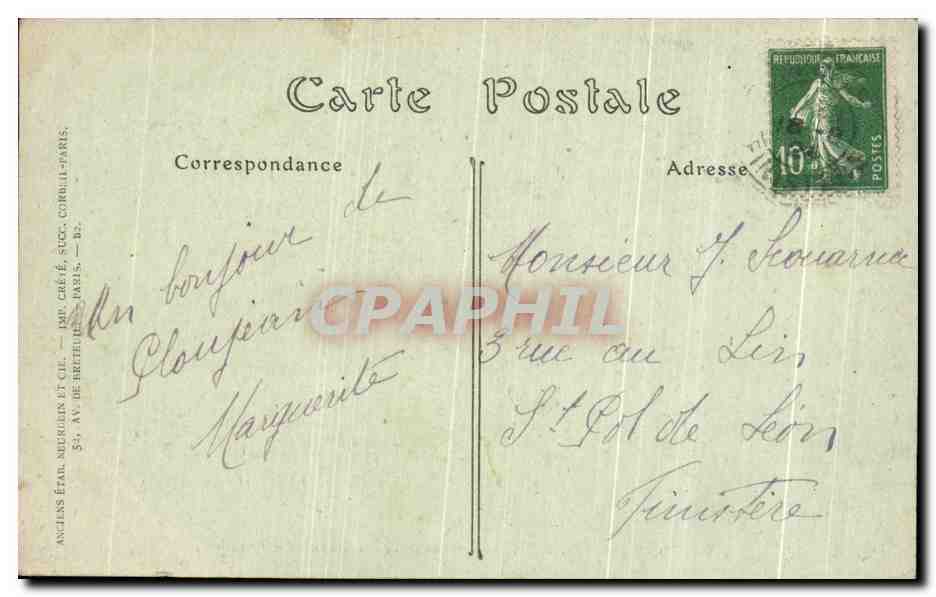 Carte Postale
Correspondance
Un bonjour de
Ploujean
Marguerite
Adresse
REPUBLIQUE FRANÇAISE
10c
POSTES
Monsieur J.
3 rue au Lin
St Pol de Léon
Finistère
ANCIENS ÉTAB. NEURDEIN ET CIE. — IMP. CRÉTÉ, SUCC. CORBEIL-PARIS.
52, AV. DE BRETEUIL. PARIS. — B2.
CPAPHIL